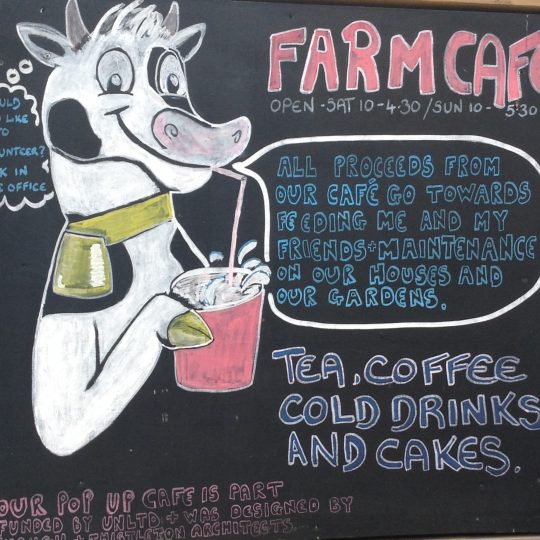 FARM CAFE
OPEN - SAT 10 - 4.30 / SUN 10 - 5.30
LIKE
TO
UNTEER?
IN
OFFICE
ALL PROCEEDS FROM
OUR CAFÉ GO TOWARDS
FEEDING ME AND MY
FRIENDS + MAINTENANCE
ON OUR HOUSES AND
OUR GARDENS.
TEA, COFFEE
COLD DRINKS
AND CAKES.
OUR POP UP CAFE IS PART
FUNDED BY UNLTD + WAS DESIGNED BY
+ THISTLETON ARCHITECTS.